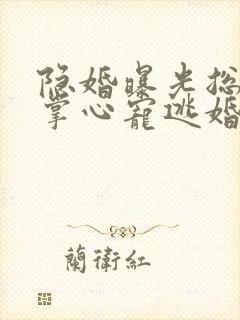 隐婚曝光总
掌心宠逃婚
蘭衛紅